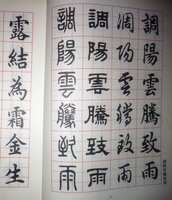 調陽雲騰致雨
調陽雲騰致雨
調陽雲騰致雨
調陽雲騰致雨
露結為霜金生